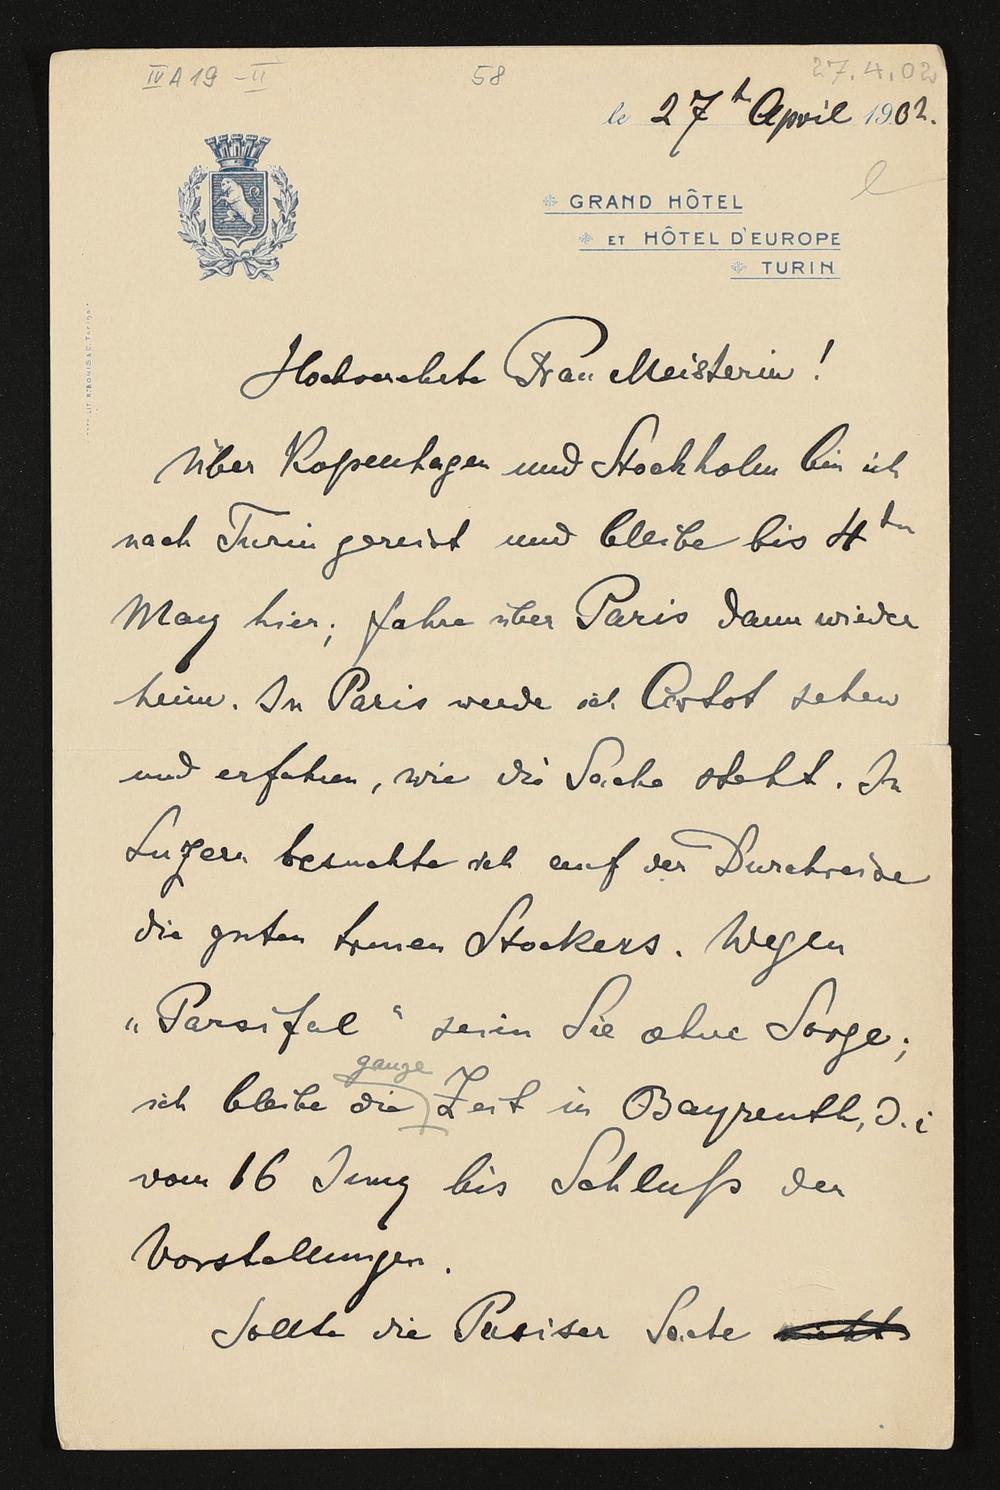 IV A 19 - II
58
27.4.02
le 27t April 1902.
GRAND HÔTEL
ET HÔTEL D'EUROPE
TURIN
Hochverehrte Frau Meisterin!
über Kopenhagen und Stockholm bin ich
nach Turin gereist und bleibe bis 4ten
May hier; fahre über Paris dann wieder
heim. In Paris werde ich Artot sehen
und erfahren, wie die Sache steht. In
Luzern besuchte ich auf der Durchreise
die guten treuen Stockers. Wegen
„Parsifal“ seien Sie ohne Sorge;
ganze
ich bleibe die Zeit in Bayreuth, d. i
vom 16 Juny bis Schluß der
Vorstellungen.
Sollte die Pariser Sache nicht